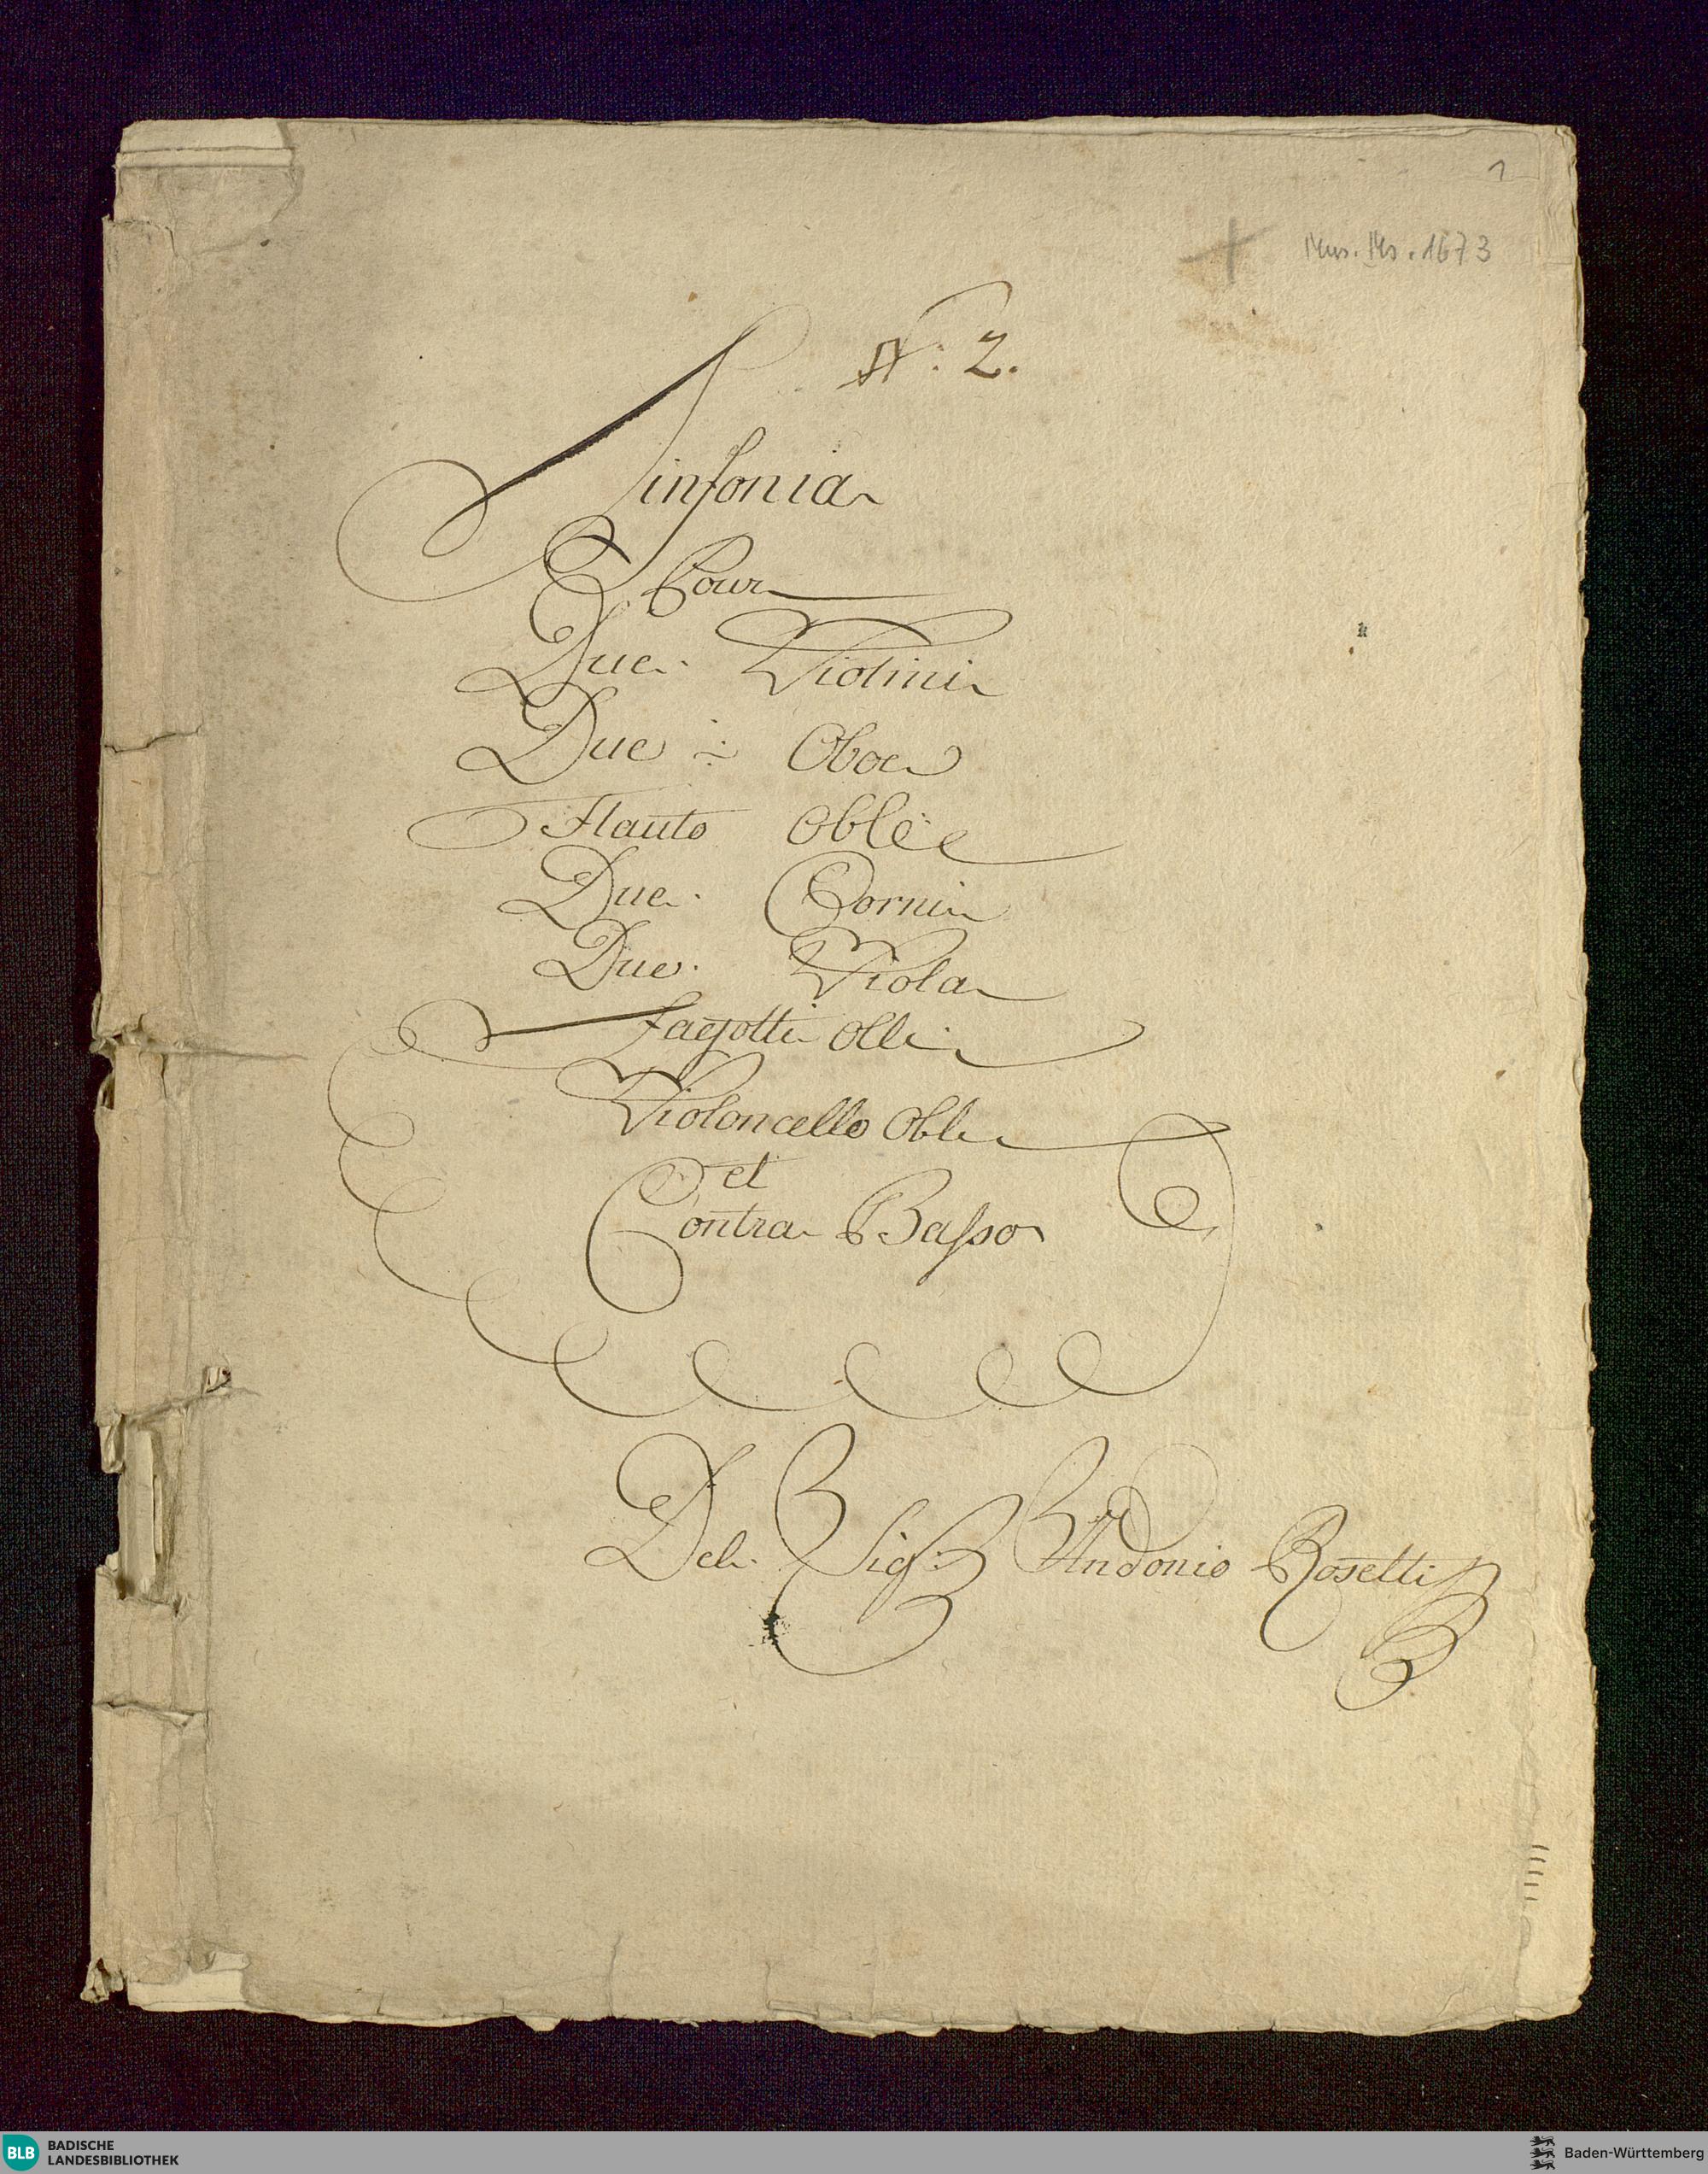 1
Mus. Ms. 1673
N: 2.
Sinfonia
Pour
Due. Violini
Due ÷ Oboe
Flauto Oble
Due. Corni
Due. Viola
Fagotti Obl:
Violoncello Obl:
et
Contra Basso
Del. Sig: Andonio Rosetti
BLB BADISCHE
LANDESBIBLIOTHEK
Baden-Württemberg